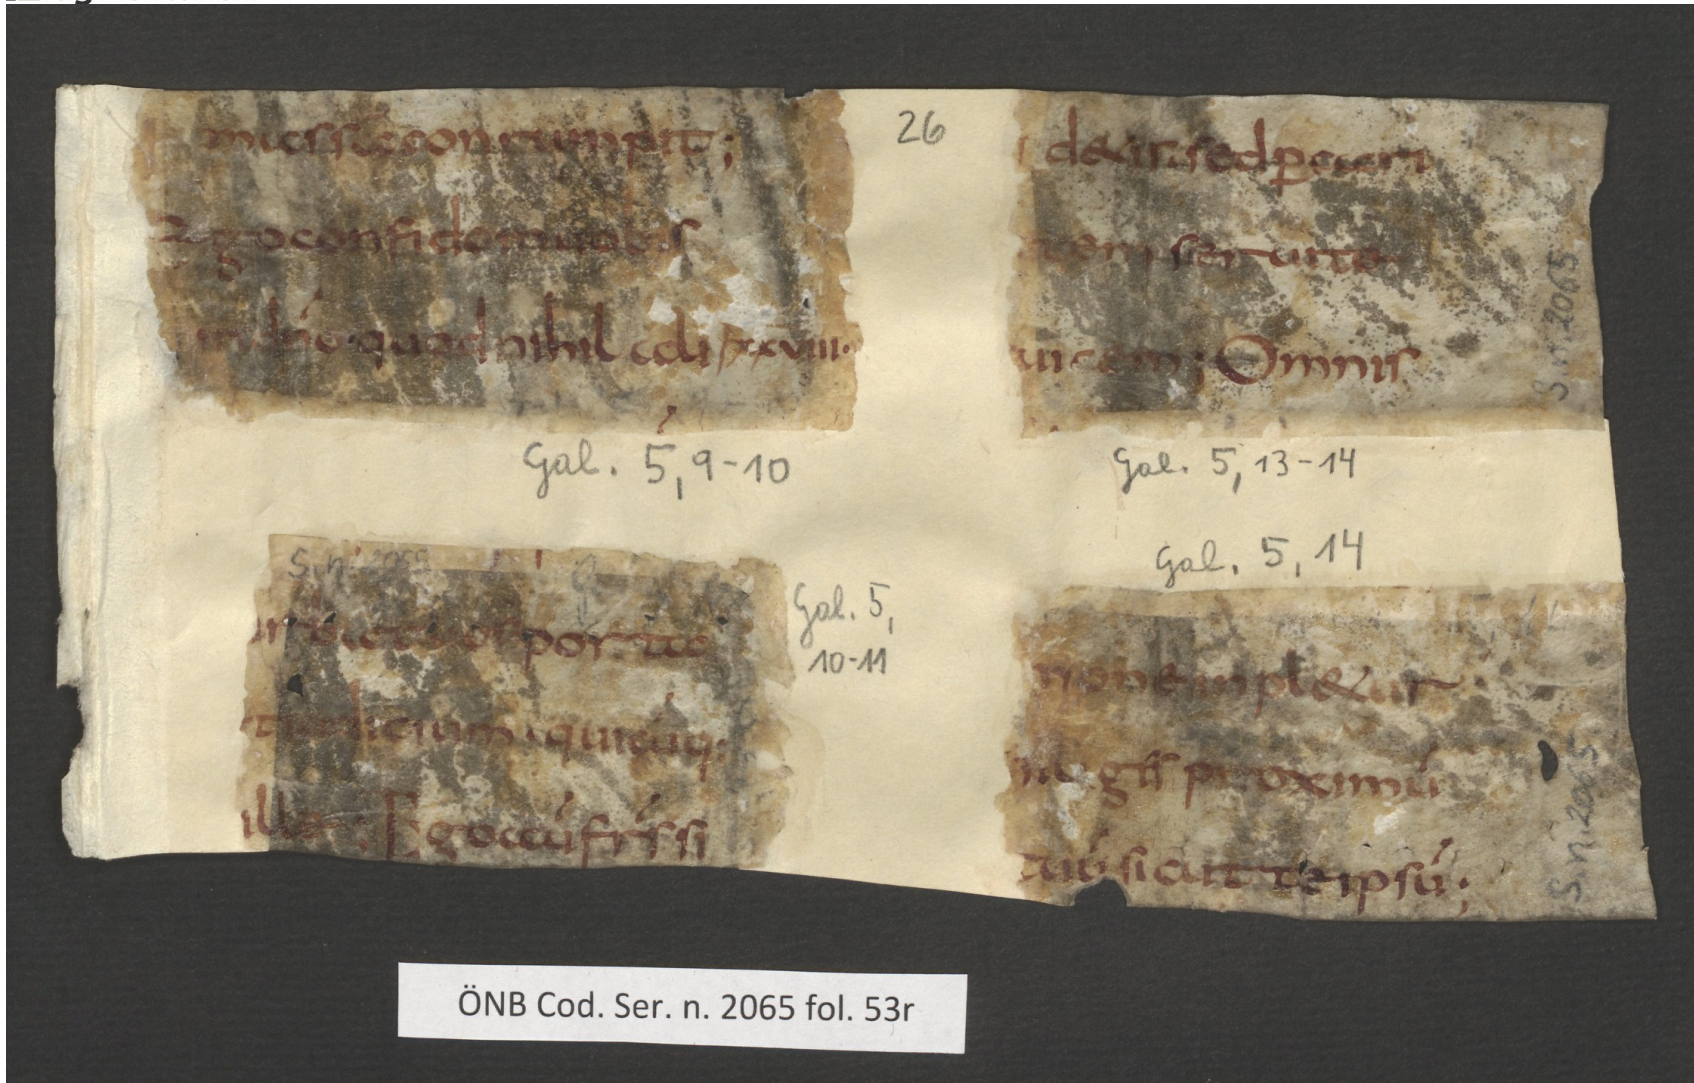 massã corrumpit;
26
Ego confido in uobis
in dño quod nihil ali xxviii·
Gal. 5, 9-10
detis sed per cari
tatem seruite
S.n. 2065
uicem; Omnis
Gal. 5, 13-14
S.n. 2065
portabit
iudicium quicũq·
ille. Ego aũ frs si
Gal. 5,
10-11
Gal. 5, 14
mone impl&ur
proximũ
tuũ sicut te ipsũ;
S.n. 2065
ÖNB Cod. Ser. n. 2065 fol. 53r